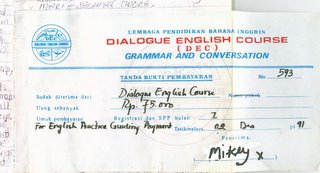 LEMBAGA PENDIDIKAN BAHASA INGGRIS
DIALOGUE ENGLISH COURSE
(DEC)
GRAMMAR AND CONVERSATION
TANDA BUKTI PEMBAYARAN
No. 593
Sudah diterima dari : Dialogue English Course
Uang sebanyak : Rp. 75.000
Untuk pembayaran : Registrasi dan SPP bulan : I
For English Practice Guiding Payment
Tasikmalaya, 02 Dec 19 91
Penerima,
(Mikey x)